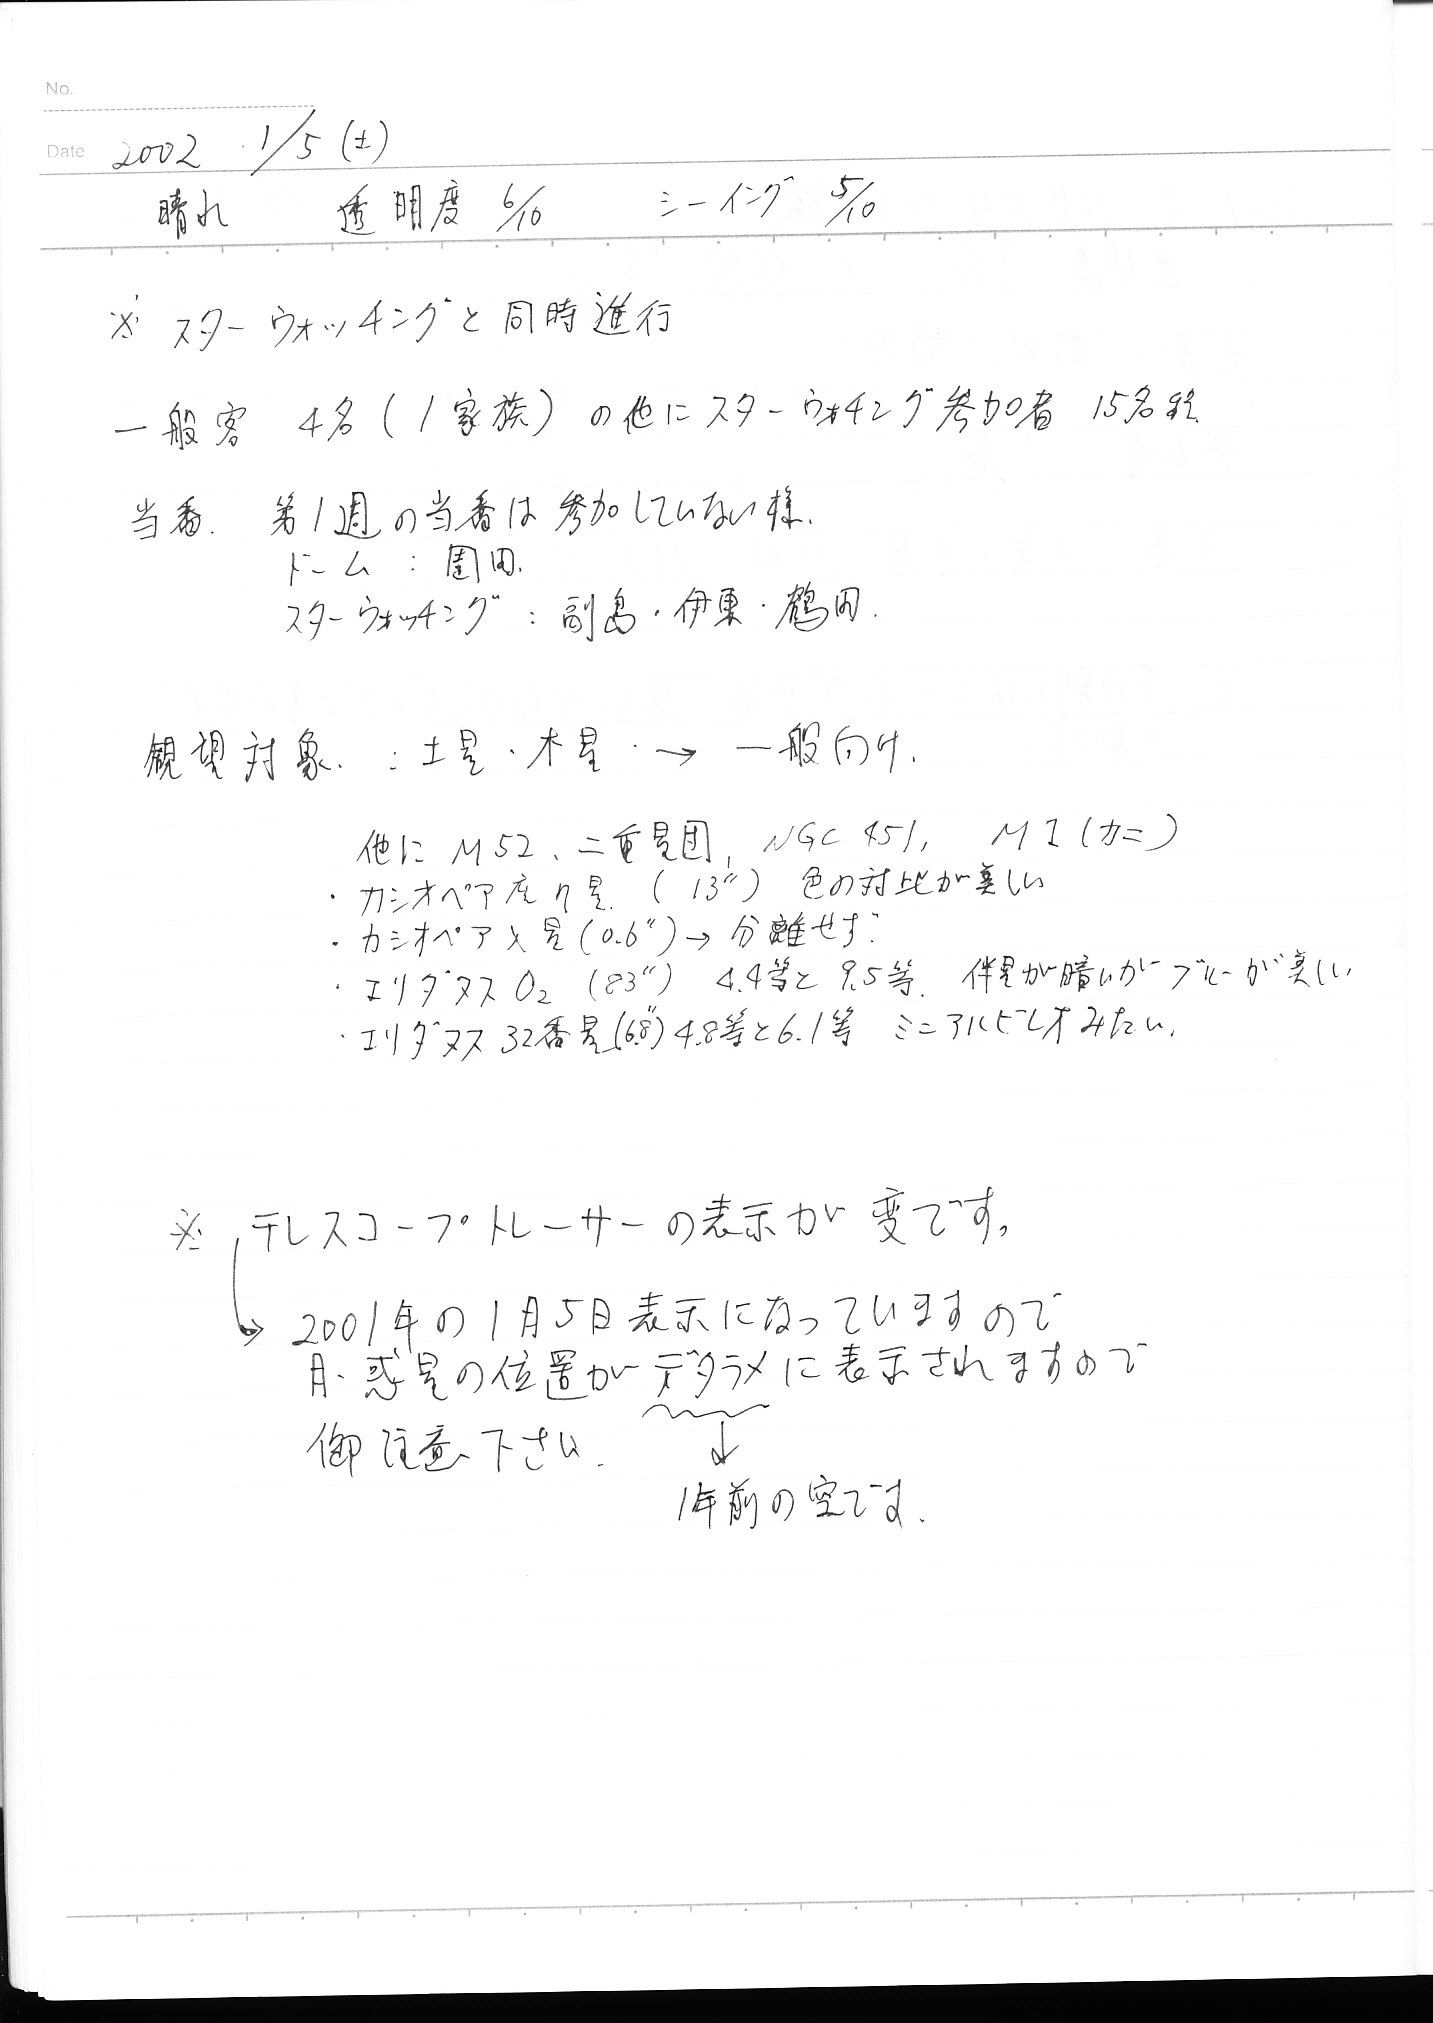 No.
Date 2002 1/5 (土)
晴れ 透明度 6/10 シーイング 5/10
※ スターウォッチングと同時進行
一般客 4名(1家族)の他にスターウォチング参加者 15名程
当番. 第1週の当番は参加していない様.
ドーム : 園田.
スターウォッチング : 副島・伊東・鶴田.
観望対象. : 土星・木星・→ 一般向け.
他に M52、二重星団, NGC 457, M1(カニ)
・カシオペア座η星. (13″) 色の対比が美しい
・カシオペアλ星(0.6″)→分離せず.
・エリダヌスO2 (83″) 4.4等と9.5等. 伴星が暗いがブルーが美しい
・エリダヌス32番星(6.8″)4.8等と6.1等 ミニアルビレオみたい.
※ テレスコープトレーサーの表示が変です。
→ 2001年の1月5日表示になっていますので
月・惑星の位置がデタラメに表示されますので
御注意下さい. ↓
1年前の空です.